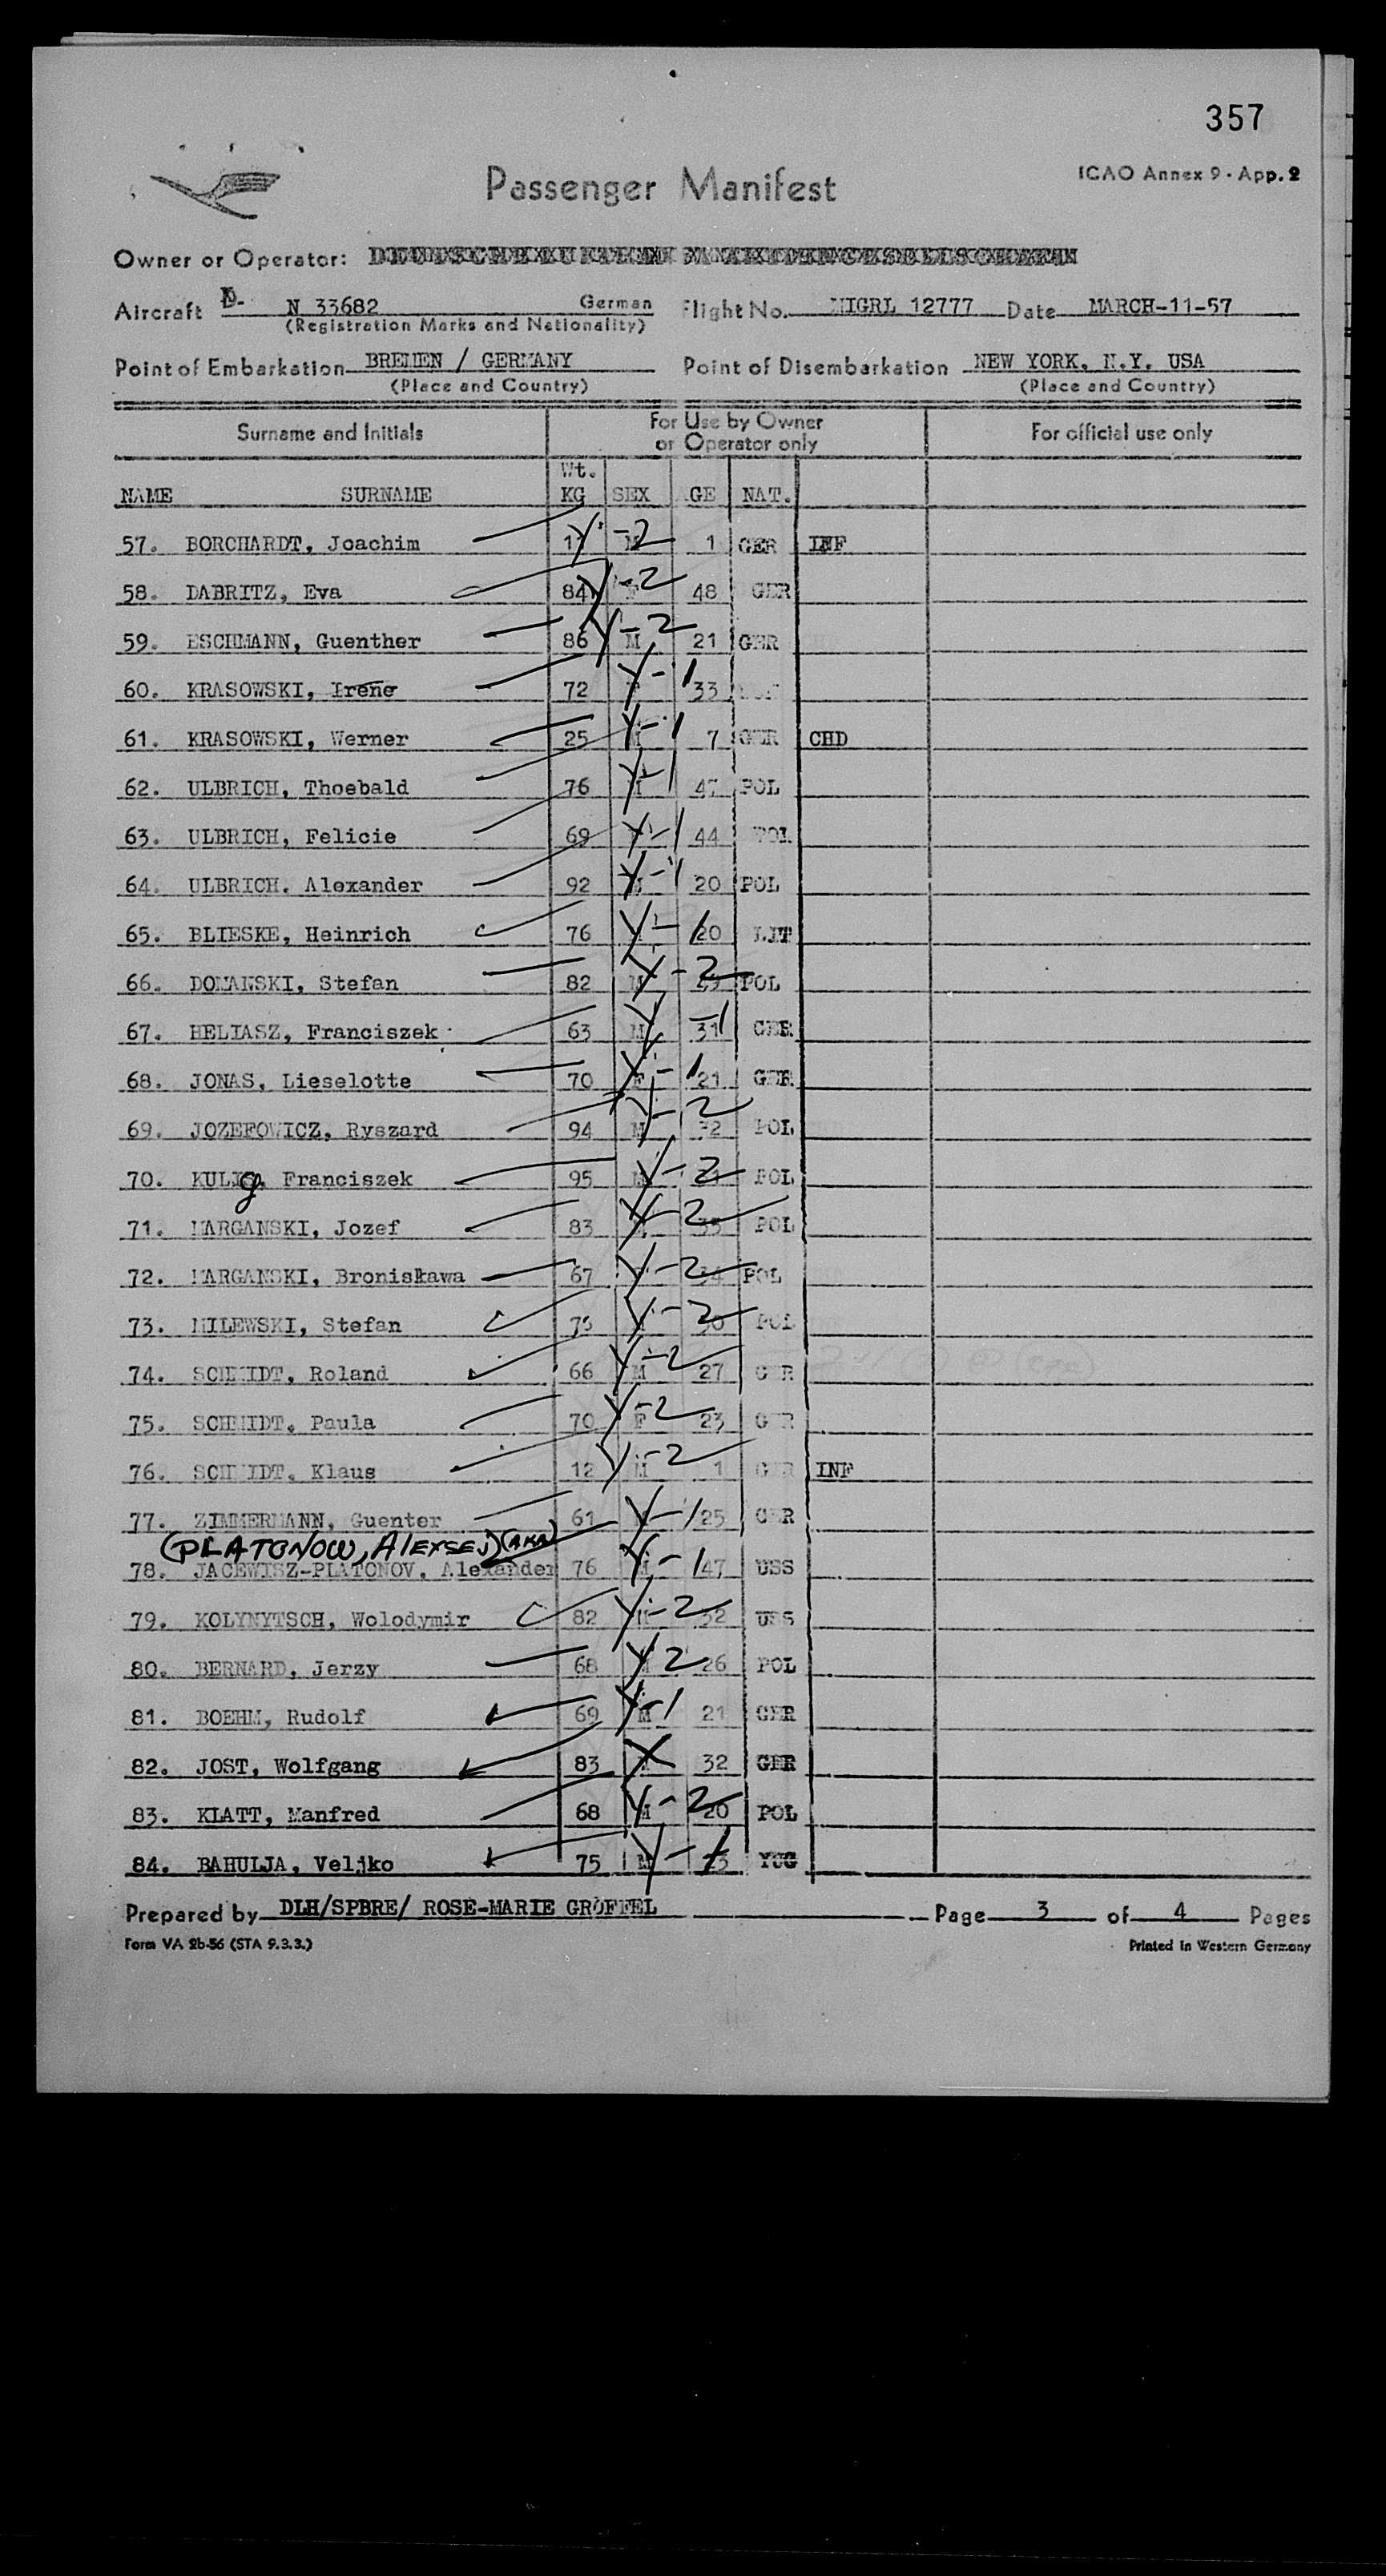 357
Passenger Manifest
ICAO Annex 9 · App. 2
Owner or Operator:
Aircraft D. N 33682 German Flight No. MIGRL 12777 Date MARCH-11-57
(Registration Marks and Nationality)
Point of Embarkation BREMEN / GERMANY Point of Disembarkation NEW YORK, N.Y. USA
(Place and Country) (Place and Country)
Surname and Initials For Use by Owner or Operator only For official use only
NAME SURNAME Wt. KG SEX GE NAT.
57. BORCHARDT, Joachim Y-2 M 1 GER INF
58. DABRITZ, Eva 84 Y-2 F 48 GER
59. ESCHMANN, Guenther 86 Y-2 M 21 GER
60. KRASOWSKI, Irene 72 Y-1 33
61. KRASOWSKI, Werner 25 Y-1 7 GER CHD
62. ULBRICH, Thoebald 76 Y-1 47 POL
63. ULBRICH, Felicie 69 Y-1 44 POL
64. ULBRICH. Alexander 92 Y-1 20 POL
65. BLIESKE, Heinrich 76 Y-1 20 LIT
66. DOMANSKI, Stefan 82 M Y-2 POL
67. HELIASZ, Franciszek 63 M Y-1 31 GER
68. JONAS, Lieselotte 70 F Y-1 21 GER
69. JOZEFOWICZ, Ryszard 94 M Y-2 32 POL
70. KULIg, Franciszek 95 Y-2 POL
71. MARGANSKI, Jozef 83 Y-2 35 POL
72. MARGANSKI, Bronisława 67 Y-2 34 POL
73. MILEWSKI, Stefan Y-2 30 POL
74. SCHMIDT, Roland 66 M Y-2 27 GER
75. SCHMIDT, Paula 70 F Y-2 23 GER
76. SCHMIDT, Klaus 12 M Y-2 1 GER INF
77. ZIMMERMANN, Guenter 61 Y-1 25 GER
(PLATONOW, Alexsej) (AKA)
78. JACEWISZ-PLATONOV, Alexander 76 M Y-1 47 USS
79. KOLYNYTSCH, Wolodymir 82 Y-2 32 USS
80. BERNARD, Jerzy 68 Y 2 26 POL
81. BOEHM, Rudolf 69 M Y-1 21 GER
82. JOST, Wolfgang 83 X 32 GER
83. KLATT, Manfred 68 M Y-2 20 POL
84. BAHULJA, Veljko 75 M Y-1 YUG
Prepared by DLH/SPBRE/ ROSE-MARIE GRÖFFEL Page 3 of 4 Pages
Form VA 2b-56 (STA 9.3.3.) Printed in Western Germany